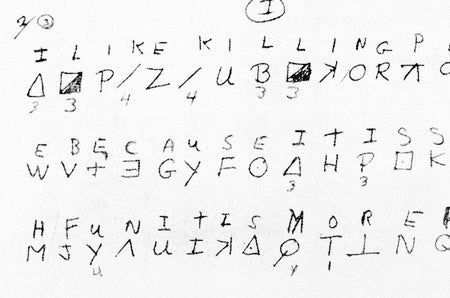 I
I L I K E K I L L I N G P
Δ ◪ P / Z / U B ◪ ꓘ O R ㅈ
3 3 4 4 3 3
E B E C A U S E I T I S S
W V + Ǝ G Y F O Δ H P □ K
3 3
H F U N I T I S M O R E
M J Y Λ U I ꓘ Δ Φ T ⊥ N Q